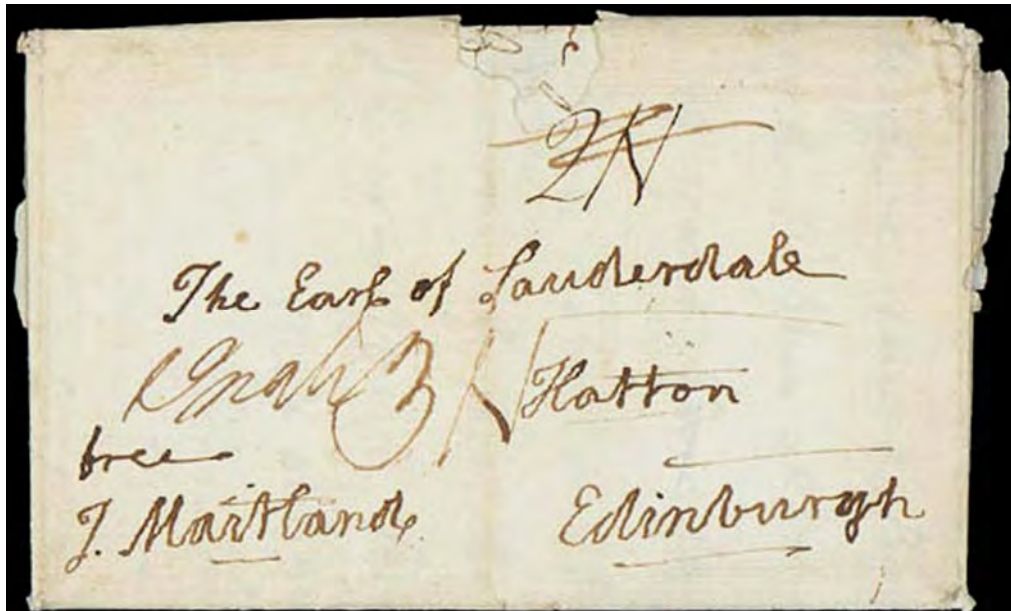 2N
The Earl of Lauderdale
3 N Hatton
free
J. Maitland
Edinburgh